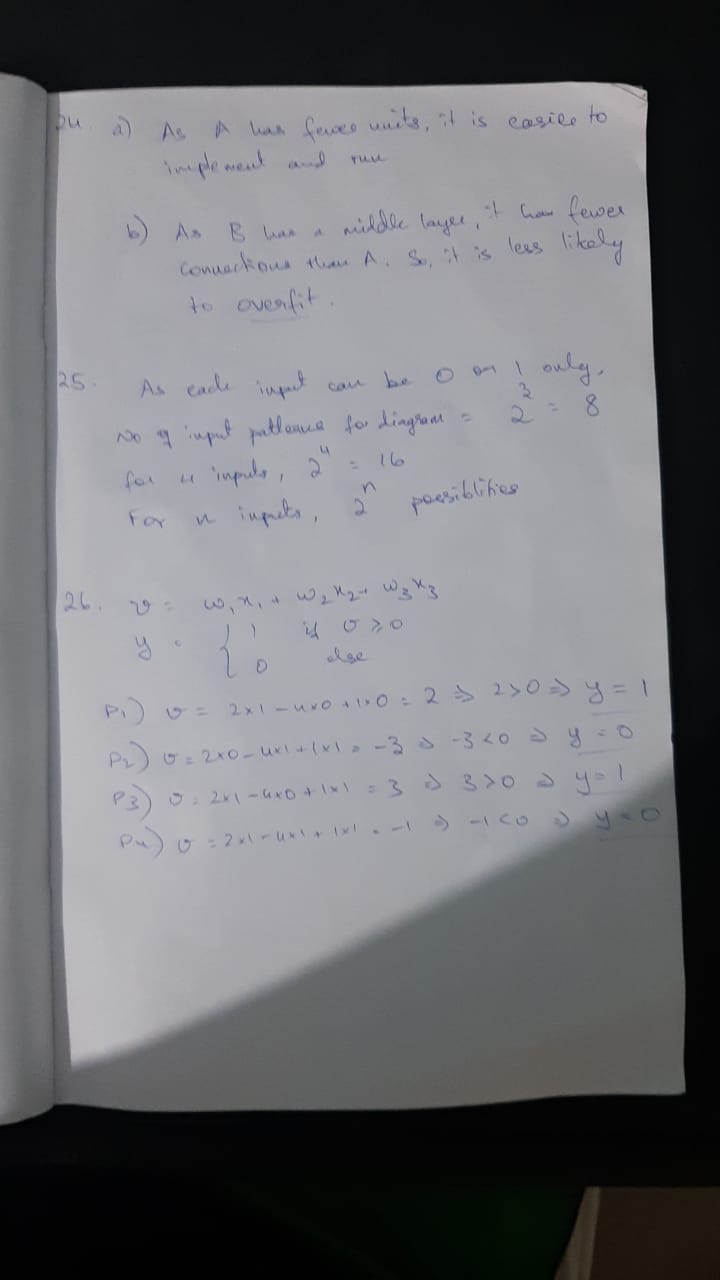 24. a) As A has fewer units, it is easier to
implement and run
b) As B has a middle layer, it has fewer
connections than A. So, it is less likely
to overfit.
25. As each input can be 0 or 1 only,
No of input patterns for diagram = 2³ = 8
for 4 inputs, 2⁴ = 16
For n inputs, 2ⁿ possiblities
26. v = w₁x₁ + w₂x₂ + w₃x₃
y = { 1 if v ≥ 0
0 else
P1) v = 2x1 - 4x0 + 1x0 = 2 ⇒ 2>0 ⇒ y = 1
P2) v = 2x0 - 4x1 + 1x1 = -3 ⇒ -3<0 ⇒ y = 0
P3) v = 2x1 - 4x0 + 1x1 = 3 ⇒ 3>0 ⇒ y = 1
P4) v = 2x1 - 4x1 + 1x1 = -1 ⇒ -1<0 ⇒ y = 0